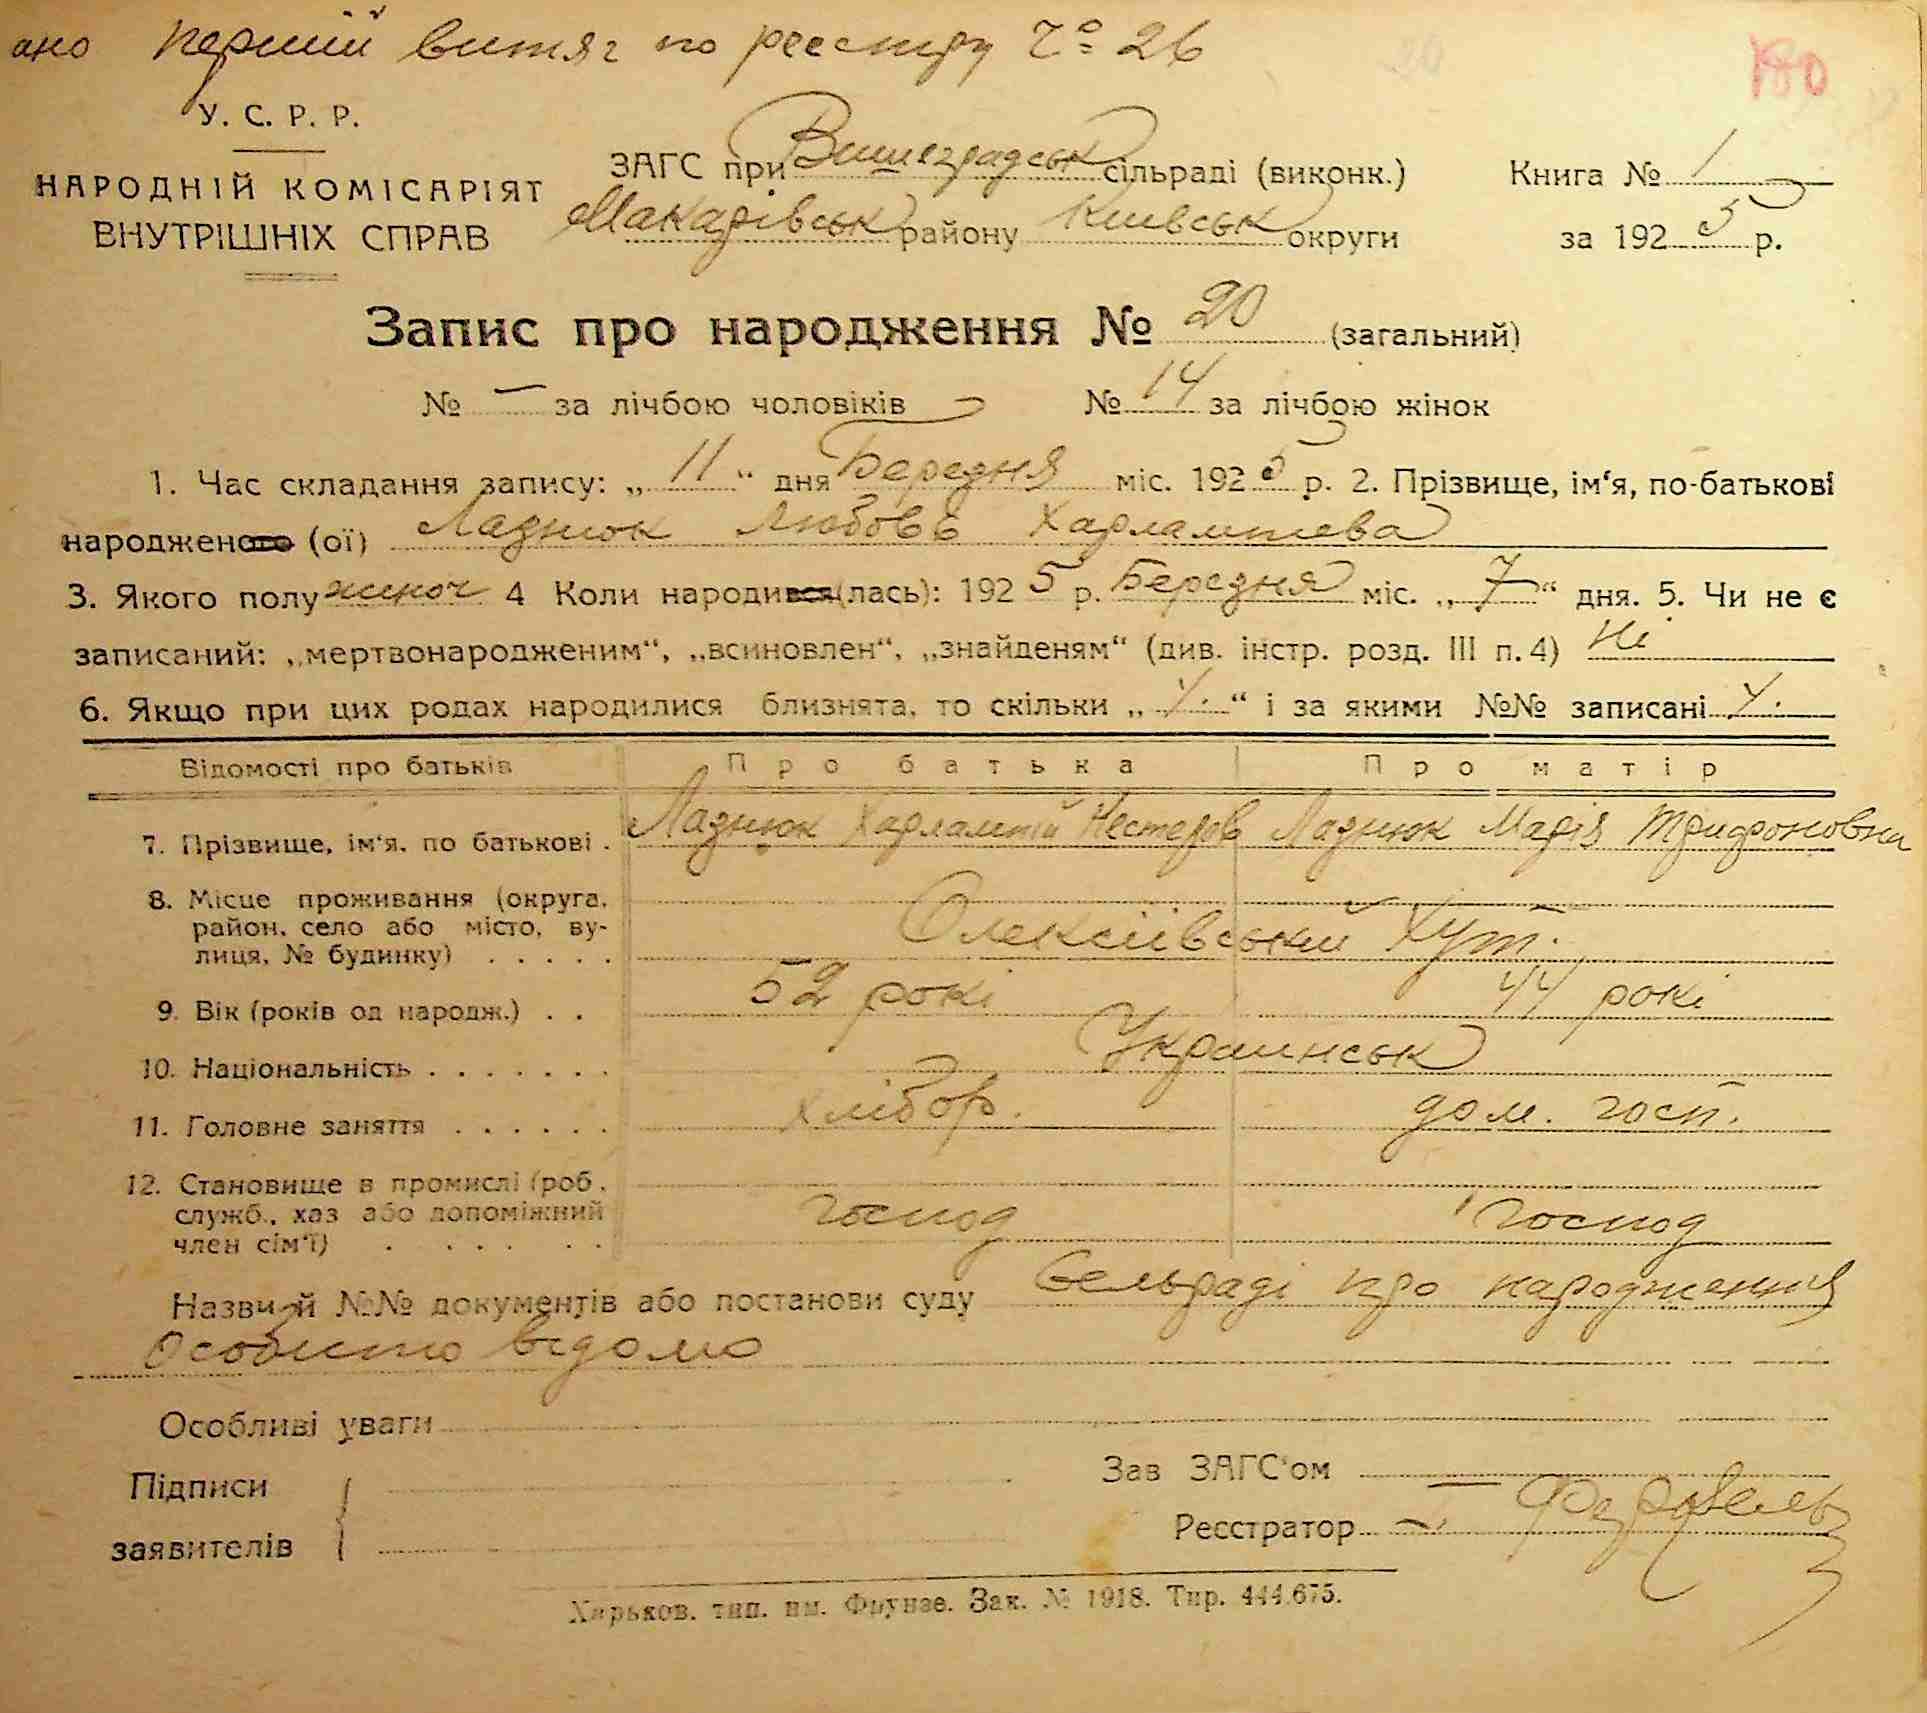 ано перший витяг по реестру Ч° 26
180
У. С. Р. Р.
НАРОДНІЙ КОМІСАРІЯТ
ВНУТРІШНІХ СПРАВ
ЗАГС при Вишеградськ сільраді (виконк.)
Макарівськ району Київськ округи
Книга № 1
за 1925 р.
Запис про народження № 20 (загальний)
№ — за лічбою чоловіків № 14 за лічбою жінок
1. Час складання запису: „ 11 “ дня Березня міс. 1925 р. 2. Прізвище, ім‘я, по-батькові
народженого (ої) Лазнюк Любовь Харлампієва
3. Якого полу жиноч 4 Коли народився (лась): 1925 р. Березня міс. „ 7 “ дня. 5. Чи не є
записаний: „мертвонародженим“, „всиновлен“, „знайденям“ (див. інстр. розд. III п. 4) Ні
6. Якщо при цих родах народилися близнята, то скільки „ “ і за якими №№ записані
Відомості про батьків Про батька Про матір
7. Прізвище, ім‘я, по батькові . Лазнюк Харлампій Нестеров Лазнюк Марія Трифоновна
8. Місце проживання (округа,
район, село або місто, ву-
лиця, № будинку) . . . . . Олексіївський Хут.
9. Вік (років од народж.) . . 52 рокі 44 рокі
10. Національність . . . . . . . Украинськ
11. Головне заняття . . . . . . хлібор. дом. госп.
12. Становище в промислі (роб.,
служб., хаз або допоміжний
член сім‘ї) . . . . . . господ господ
Назви й №№ документів або постанови суду Сельраді про народження
особисто відомо
Особливі уваги
Підписи
заявителів
Зав ЗАГС‘ом
Реєстратор
Харьков. тип. им. Фрунзе. Зак. № 1918. Тир. 444.675.